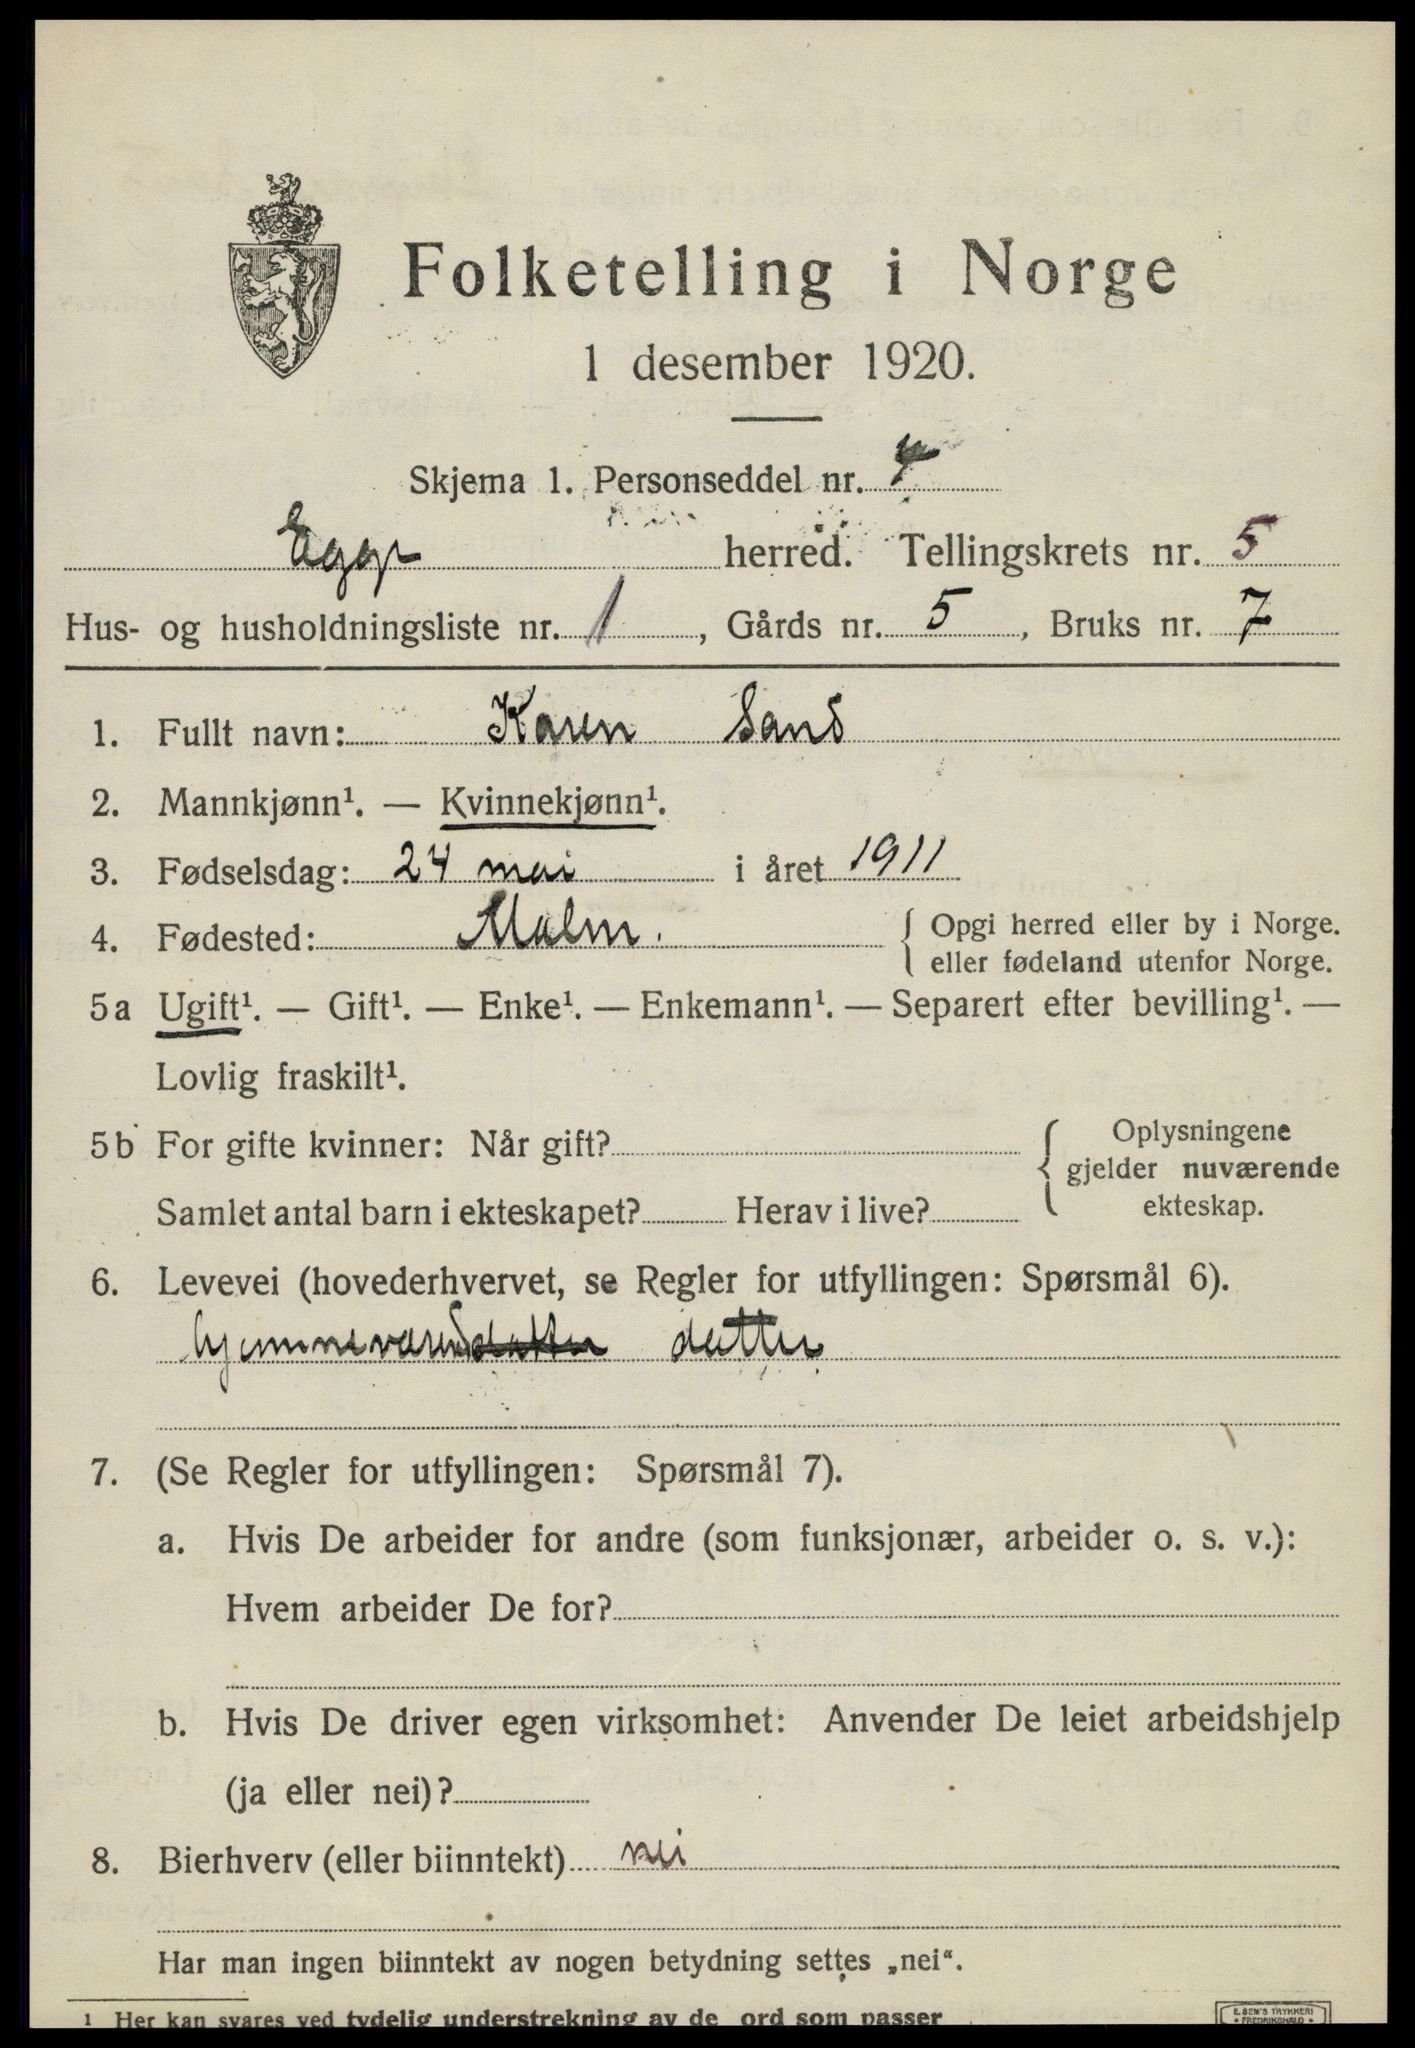 Folketelling i Norge
1 desember 1920.
Skjema 1. Personseddel nr. 4
Egge herred. Tellingskrets nr. 5
Hus- og husholdningsliste nr. 1, Gårds nr. 5, Bruks nr. 7
1. Fullt navn: Karen Sand
2. Mannkjønn¹. — Kvinnekjønn¹.
3. Fødselsdag: 24 mai i året 1911
4. Fødested: Malm. { Opgi herred eller by i Norge.
eller fødeland utenfor Norge.
5a Ugift¹. — Gift¹. — Enke¹. — Enkemann¹. — Separert efter bevilling¹. —
Lovlig fraskilt¹.
5b For gifte kvinner: Når gift? { Oplysningene
gjelder nuværende
Samlet antal barn i ekteskapet? Herav i live? ekteskap.
6. Levevei (hovederhvervet, se Regler for utfyllingen: Spørsmål 6).
hjemmeværend datter datter
7. (Se Regler for utfyllingen: Spørsmål 7).
a. Hvis De arbeider for andre (som funksjonær, arbeider o. s. v.):
Hvem arbeider De for?
b. Hvis De driver egen virksomhet: Anvender De leiet arbeidshjelp
(ja eller nei)?
8. Bierhverv (eller biinntekt) nei
Har man ingen biinntekt av nogen betydning settes „nei“.
¹ Her kan svares ved tydelig understrekning av de ord som passer
E. SEM'S TRYKKERI
• FREDRIKSHALD •